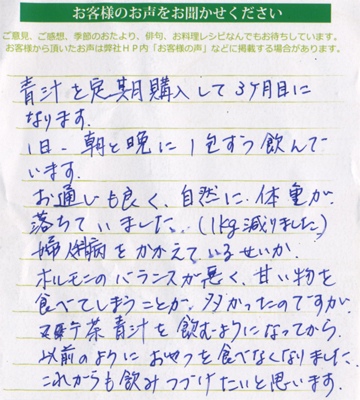 お客様のお声をお聞かせください
ご意見、ご感想、季節のおたより、俳句、お料理レシピなんでもお待ちしています。
お客様から頂いたお声は弊社HP内「お客様の声」などに掲載する場合があります。
青汁を定期購入して3ヶ月目に
なります。
1日、朝と晩に1包ずつ飲んで
います。
お通じも良く、自然に、体重が
落ちていました。(1kg減りました)
婦人科病をかかえているせいか、
ホルモンのバランスが悪く、甘い物を
食べてしまうことが、多かったのですが、
茶青汁を飲むようになってから、
以前のようにおやつを食べなくなりました。
これからも飲みつづけたいと思います。